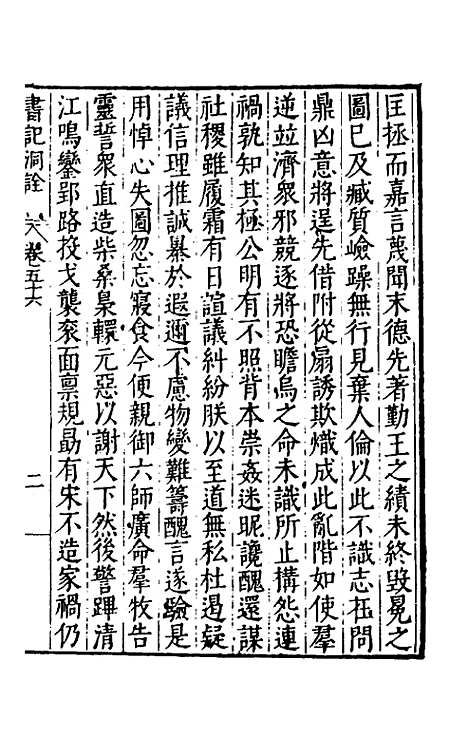 匡拯而嘉言蔑聞末德先著勤王之績未終毀冕之
圖已及臧質嶮躁無行見棄人倫以此不識志在問
鼎凶意將逞先借附從扇誘欺熾成此亂階如使羣
逆並濟衆邪競逐將恐瞻烏之命未識所止構怨連
禍孰知其極公明有不照背本崇姦迷昵讒醜還謀
社稷雖履霜有日諠議糾紛朕以至道無私杜遏疑
議信理推誠暴於遐邇不慮物變難籌醜言遂驗是
用悼心失圖忽忘寢食今便親御六師廣命羣牧告
靈誓衆直造柴桑梟轘元惡以謝天下然後警蹕清
江鳴鑾郢路投戈襲衮面禀規勗有宋不造家禍仍
書記洞詮 卷五十六 二